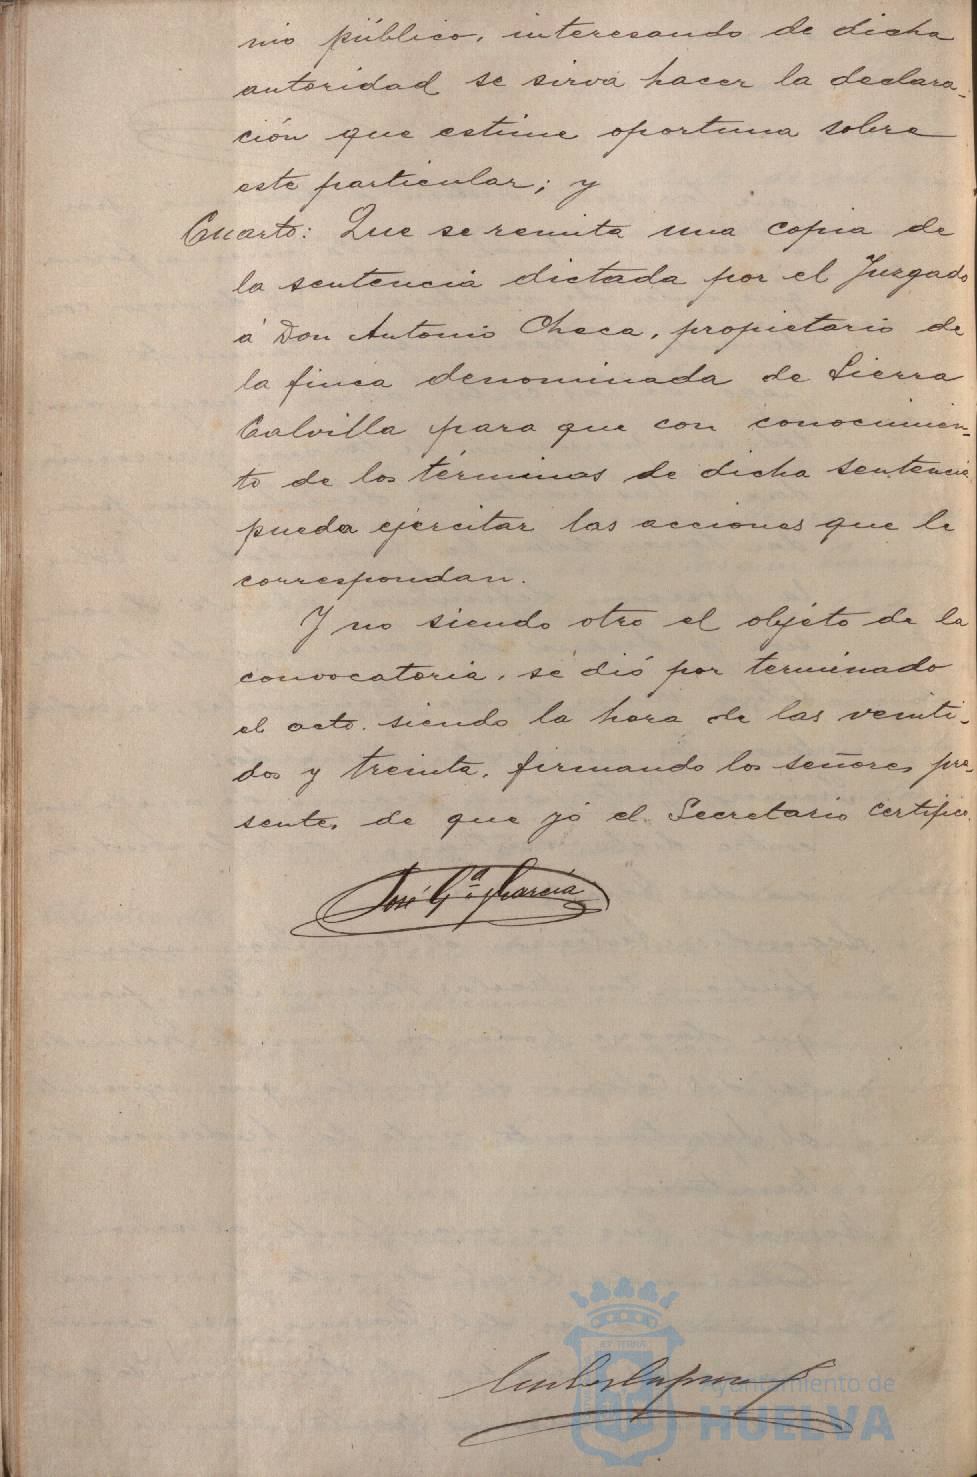 nio público, interesando de dicha
autoridad se sirva hacer la declara-
ción que estime oportuna sobre
este particular; y
Cuarto: Que se remita una copia de
la sentencia dictada por el Juzgado
á Don Antonio Checa, propietario de
la finca denominada de Sierra
Calvilla para que con conocimien-
to de los términos de dicha sentencia
pueda ejercitar las acciones que le
correspondan.
Y no siendo otro el objeto de la
convocatoria, se dió por terminado
el acto siendo la hora de las veinti-
dos y treinta, firmando los señores pre-
sentes de que yó el Secretario certifico.
José G.ª García
AY. TERRA
Ayuntamiento de
HUELVA